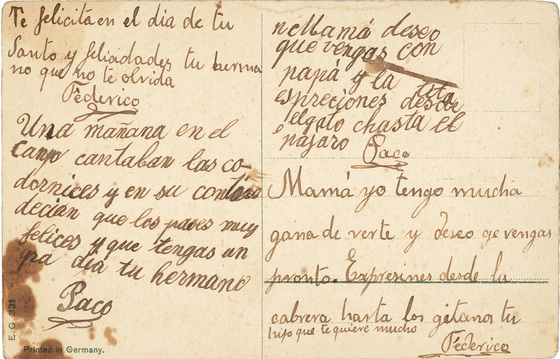 Te felicita en el dia de tu
Santo y feliadades tu herma
no que no te olvida
Federico
Una mañana en el
campo cantaban las co-
dornices y en su
decian que los pases muy
felices y que tengas un
gra dia tu hermano
Paco
mamá deseo
que vengas con
papá y la tita
espreciones desde
el gato hasta el
pajaro
Paco
Mamá yo tengo mucha
gana de verte y deseo qe vengas
pronto. Expresines desde la
cabrera hasta los gitanos tu
hijo que te quiere mucho
Federico
E. G. 331
Printed in Germany.